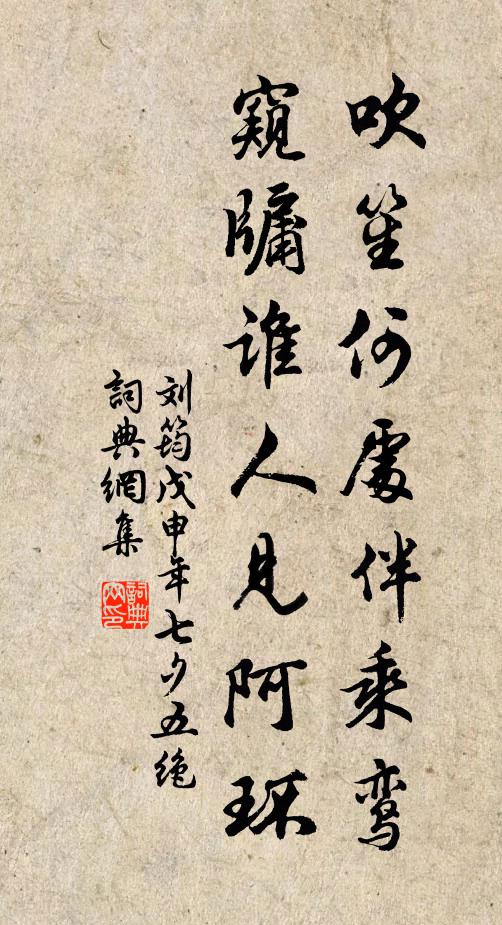 吹笙何處伴乘鸾
窺牖誰人見阿环
刘筠戊申年七夕五絶
詞典網集
詞典网印